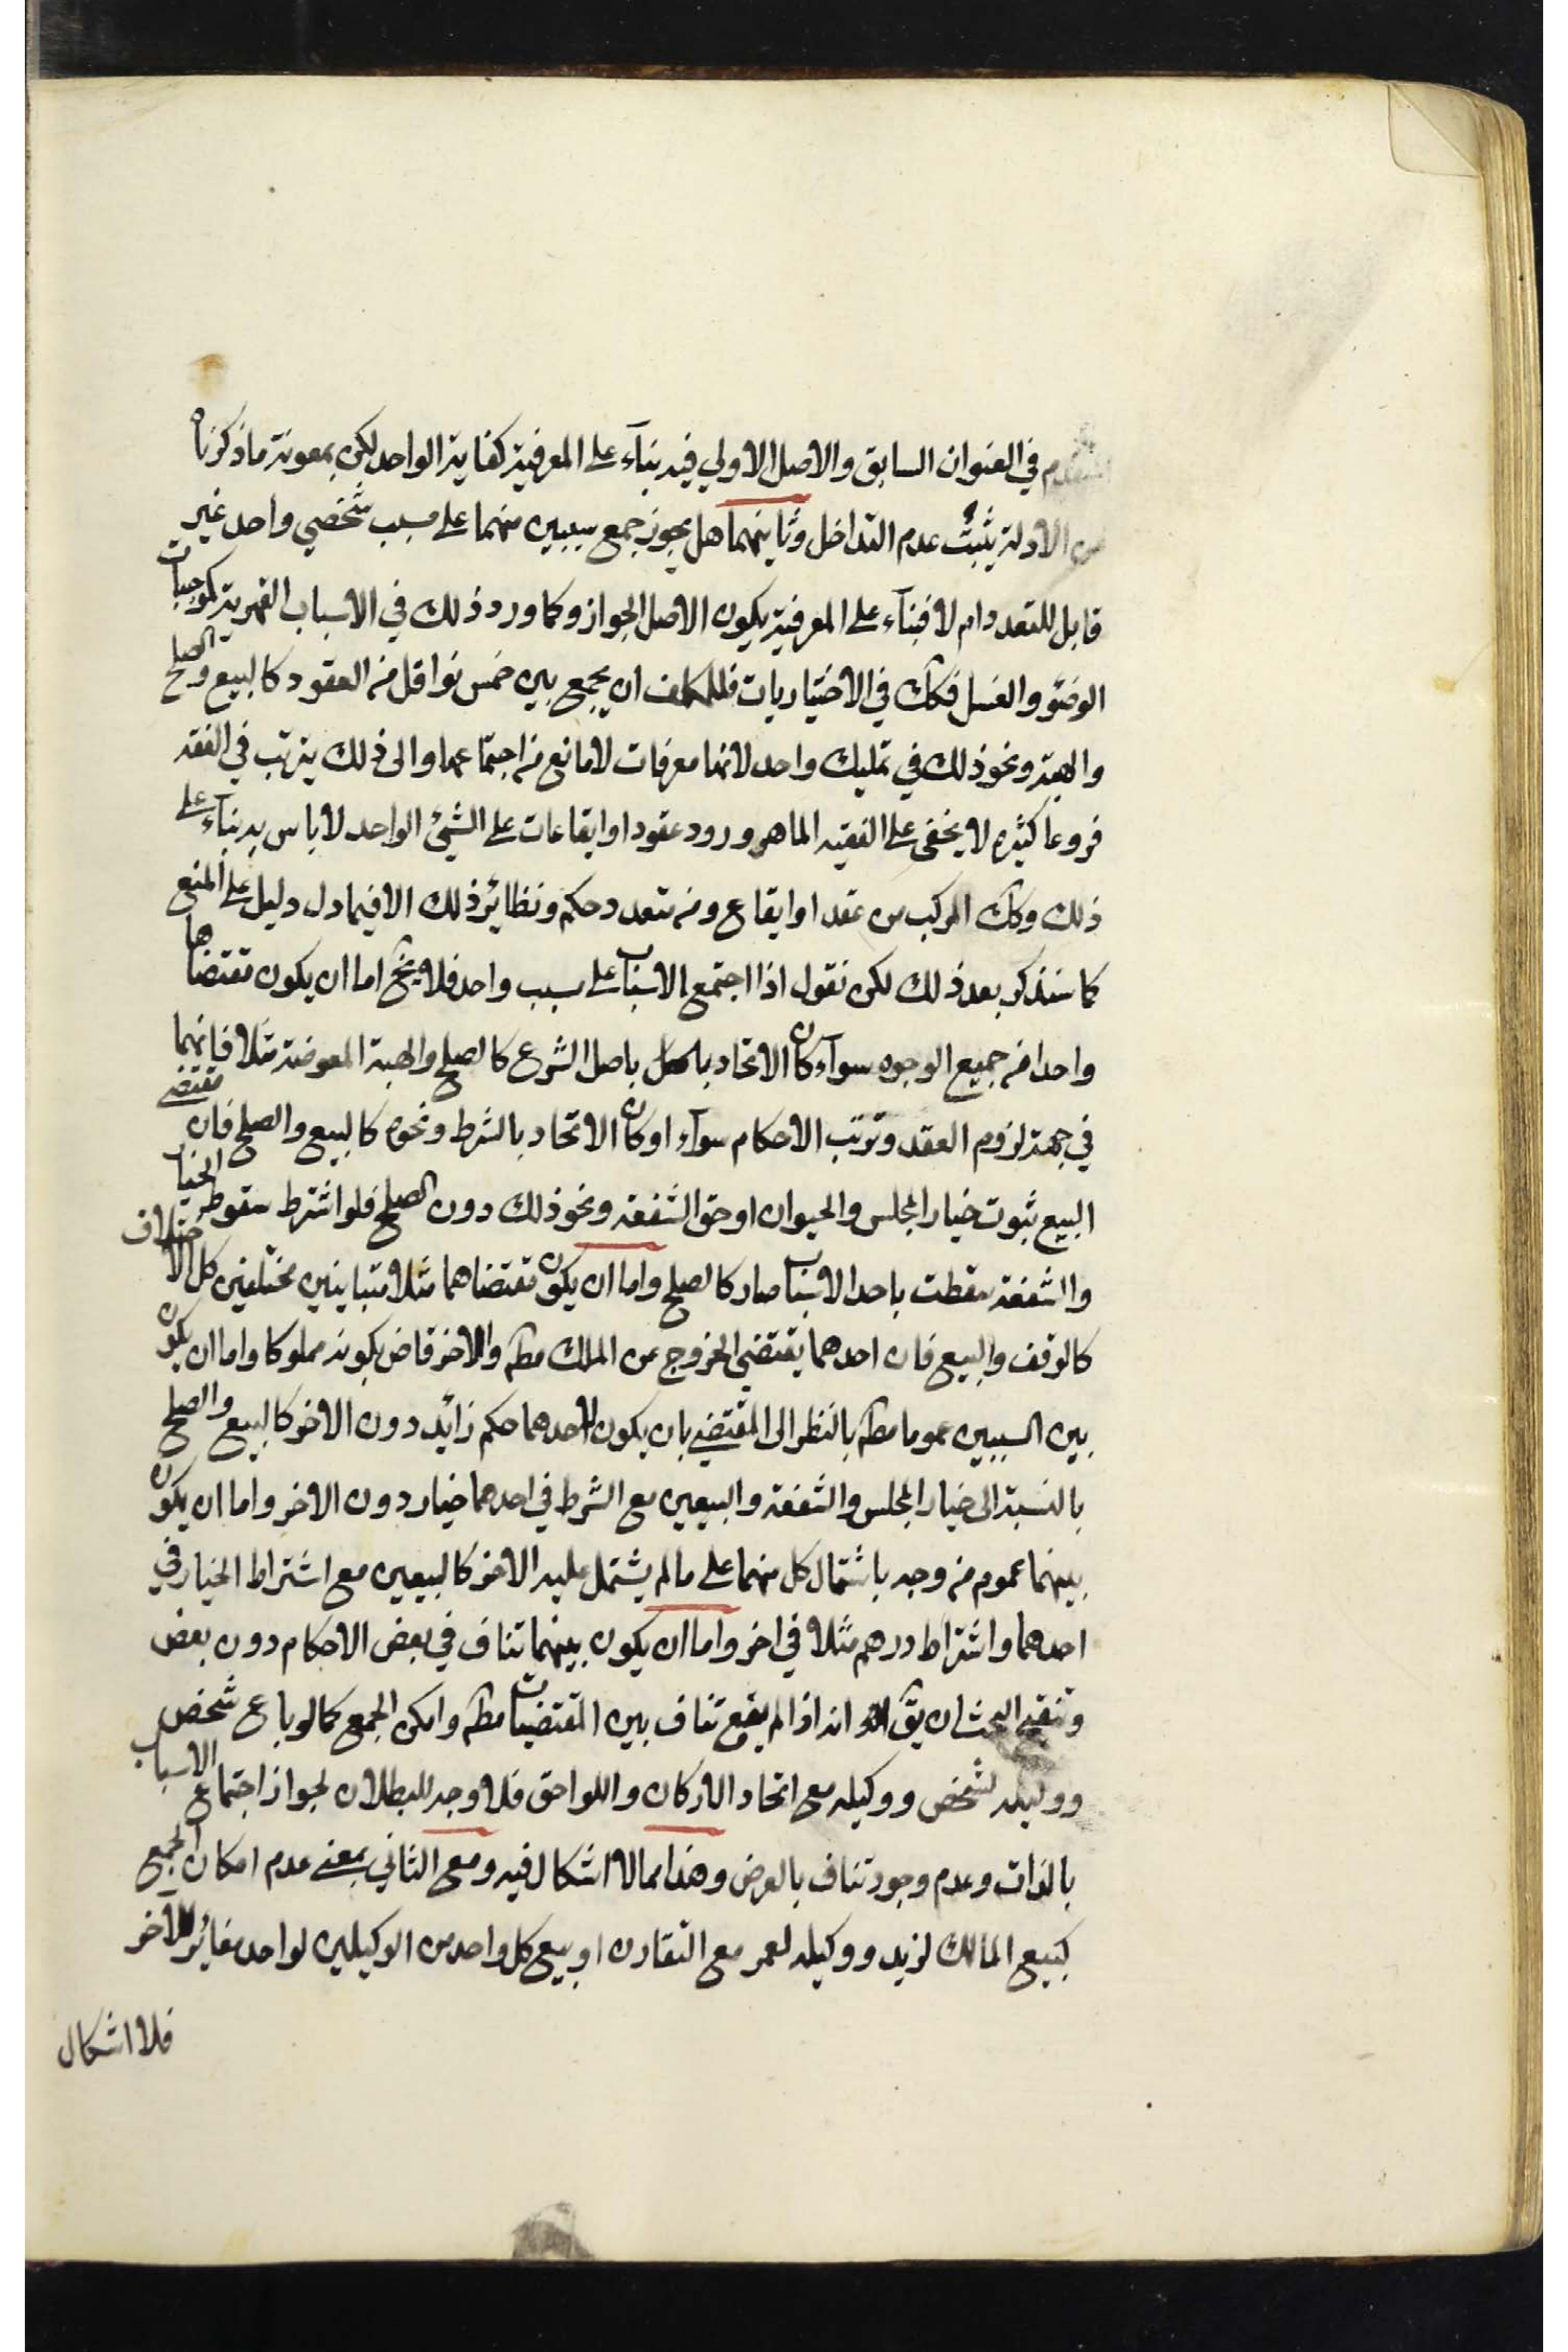 المتقدم في العنوان السابق والاصل الاولي فيه بناء على المعرفية كفاية الواحد لكن بمعونة ما ذكرناه
من الادلة يثبت عدم التداخل وثانيهما هل يجوز جمع سببين منهما على مسبب شخصي واحد غير
قابل للتعدد ام لا فبناء على المعرفية يكون الاصل الجواز وكما ورد ذلك في الاسباب القهرية كموجبات
الوضوء والغسل فكك في الاختياريات فللمكلف ان يجمع بين خمس نواقل من العقود كالبيع والصلح
والهبة ونحو ذلك في تمليك واحد لانها معرفات لا مانع من اجتماعها والى ذلك يترتب في الفقه
فروعا كثيرة لا يخفى على الفقيه الماهر ورود عقود او ايقاعات على الشيئ الواحد لا باس به بناء على
ذلك وكك المركب من عقد او ايقاع ومن متعدد حكم ونظائر ذلك الا فيما دل دليل على المنع
كما سنذكر بعد ذلك لكن نقول اذا اجتمع الاسباب على سبب واحد فلا يخ اما ان يكون مقتضاها
واحدا من جميع الوجوه سواء كان الاتحاد باصل الشرع كالصلح والهبة المعوضة مثلا فانهما
في جهة لزوم العقد وترتب الاحكام سواء او كان الاتحاد بالشرط ونحوه كالبيع والصلح فان مقتضى
البيع ثبوت خيار المجلس والحيوان او حق الشفعة ونحو ذلك دون الصلح فلو اشترط سقوط الخيار
والشفعة سقطت باحد الاسباب صار كالصلح واما ان يكون مقتضاهما مثلا متباينين مختلفين كل الاختلاف
كالوقف والبيع فان احدهما يقتضي الخروج عن الملك مطه والاخر قاض بكونه مملوكا واما ان يكون
بين السببين عموما مطه بالنظر الى المقتضى بان يكون لاحدهما حكم زائد دون الاخر كالبيع والصلح
بالنسبة الى خيار المجلس والشفعة والبيعين مع الشرط في احدهما خيار دون الاخر واما ان يكون
بينهما عموم من وجه باشتمال كل منهما على ما لم يشتمل عليه الاخر كالبيعين مع اشتراط الخيار في
احدهما واشتراط درهم مثلا في اخر واما ان يكون بينهما تناف في بعض الاحكام دون بعض
وتنقيح البحث ان يق انه اذا لم يقع تناف بين المقتضيات مطه وامكن الجمع كما لو باع شخص
ووكيله لشخص ووكيله مع اتحاد الاركان واللواحق فلا وجه للبطلان لجواز اجتماع الاسباب
بالذات وعدم وجود تناف بالعرض وهذا مما لا اشكال فيه ومع الثاني بمعنى عدم امكان الجمع
كبيع المالك لزيد ووكيله لعمر مع التقارن او بيع كل واحد من الوكيلين لواحد مغائر للاخر
فلا اشكال